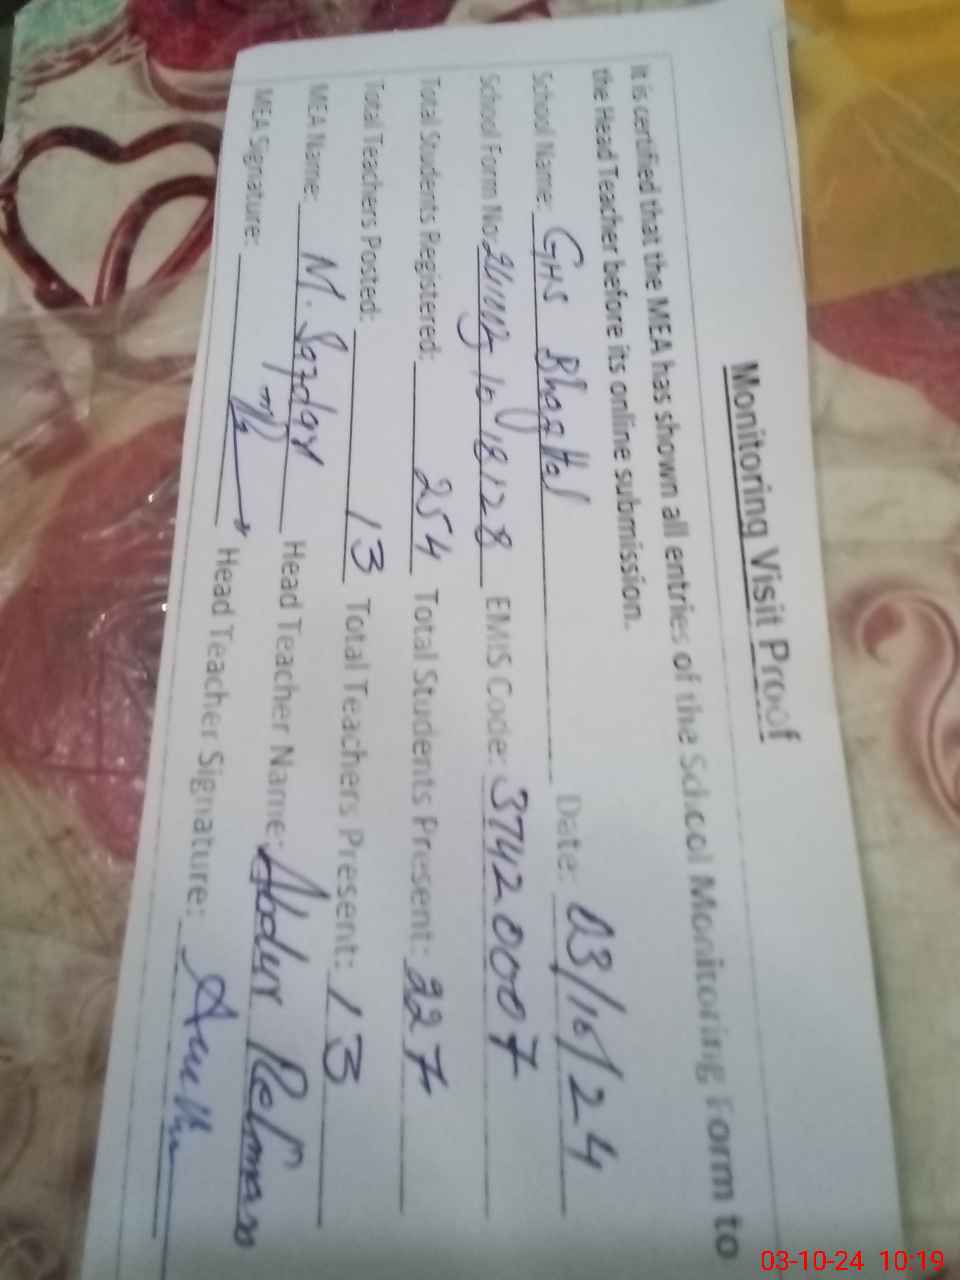 Monitoring Visit Proof
It is certified that the MEA has shown all entries of the School Monitoring Form to
the Head Teacher before its online submission.
School Name: GHS Date: 03/10/24
School Form No: EMIS Code: 37420007
Total Students Registered: 254 Total Students Present: 227
Total Teachers Posted: 13 Total Teachers Present: 13
MEA Name: M. Head Teacher Name: Abdur Rehman
MEA Signature: Head Teacher Signature:
03-10-24 10:19